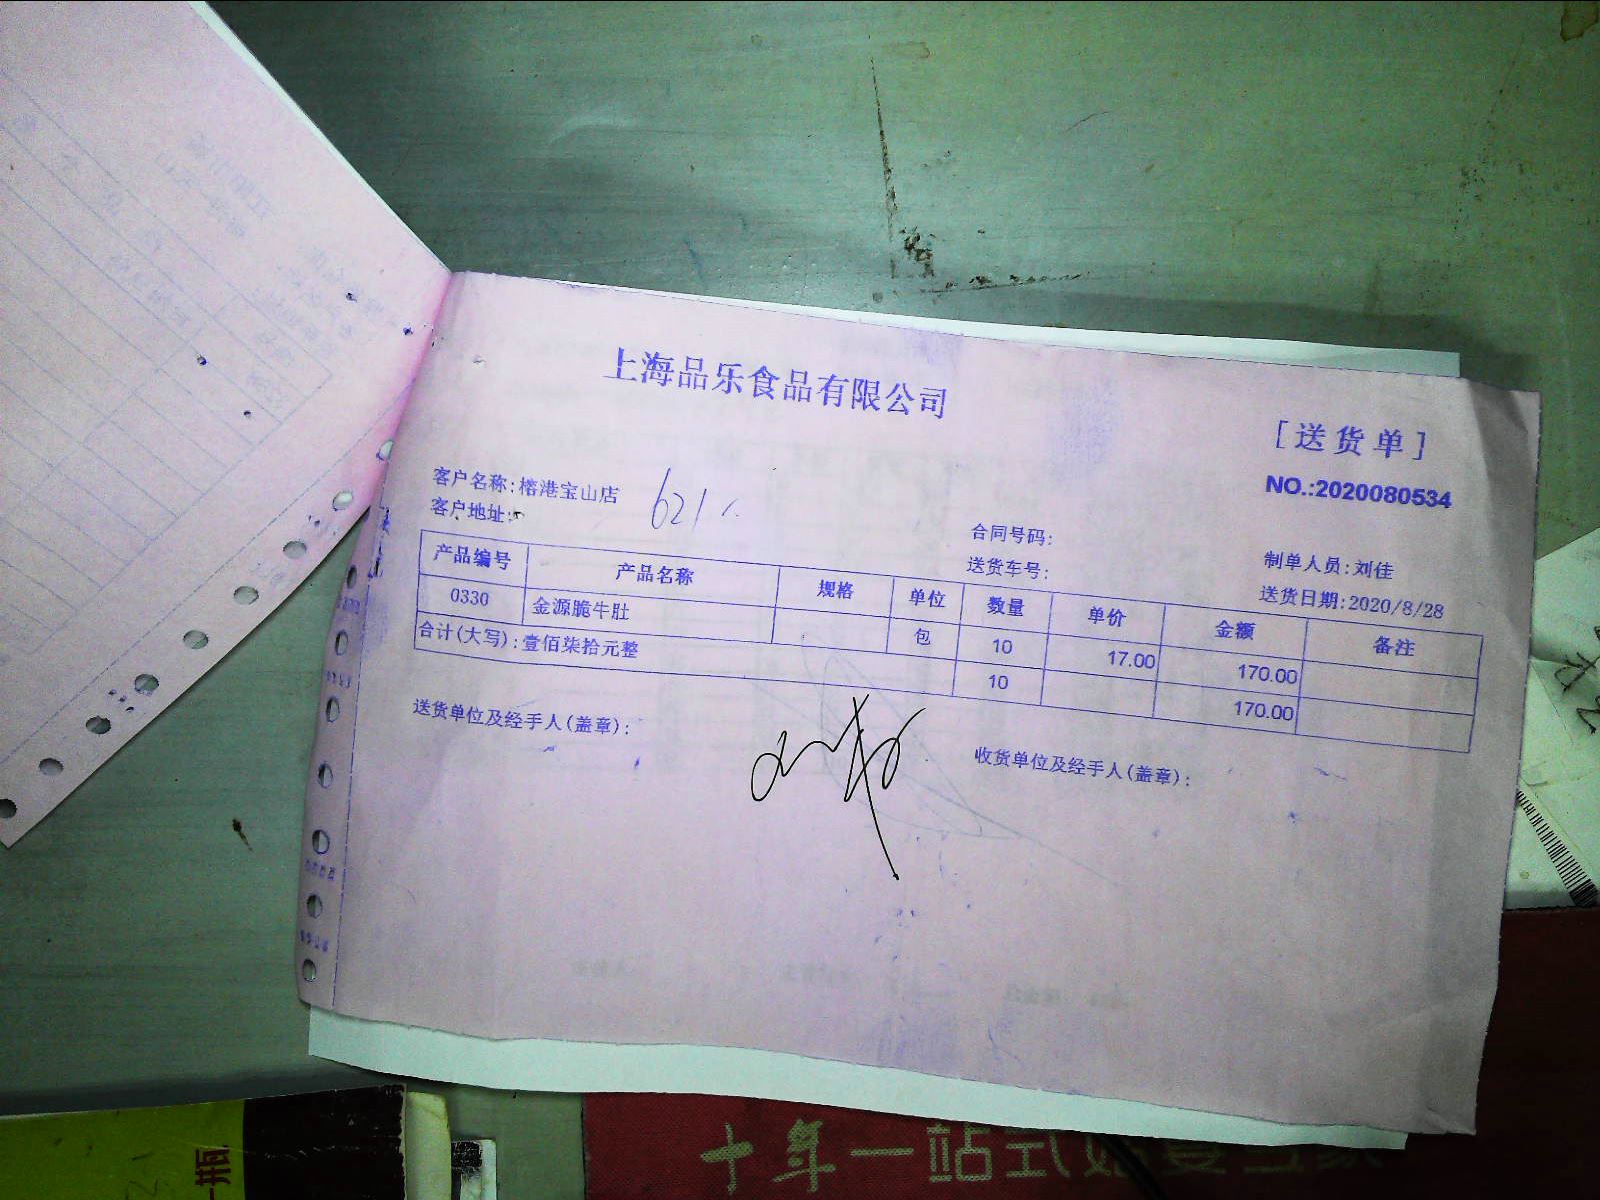 上海品乐食品有限公司
[送货单]
NO.:2020080534
客户名称:榕港宝山店 621
客户地址:
合同号码:
制单人员:刘佳
送货车号:
送货日期:2020/8/28
产品编号 产品名称 规格 单位 数量 单价 金额 备注
0330 金源脆牛肚 包 10 17.00 170.00
合计(大写):壹佰柒拾元整 10 170.00
送货单位及经手人(盖章):
收货单位及经手人(盖章):
一瓶
十年一站式